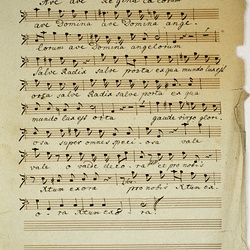 Ave ave Regina cælorum
ave Domina ave Domina ange-
lorum ave Domina angelorum
Salve Radix salve porta ex qua mundo lux est
orta salve Radix salve porta ex qua
mundo lux est orta gaude virgo glori-
osa super omnes speciosa vale
vale o valde decora et pro nobis
Xtum exora pro nobis Xtum ex
o ra Xtum ex ra